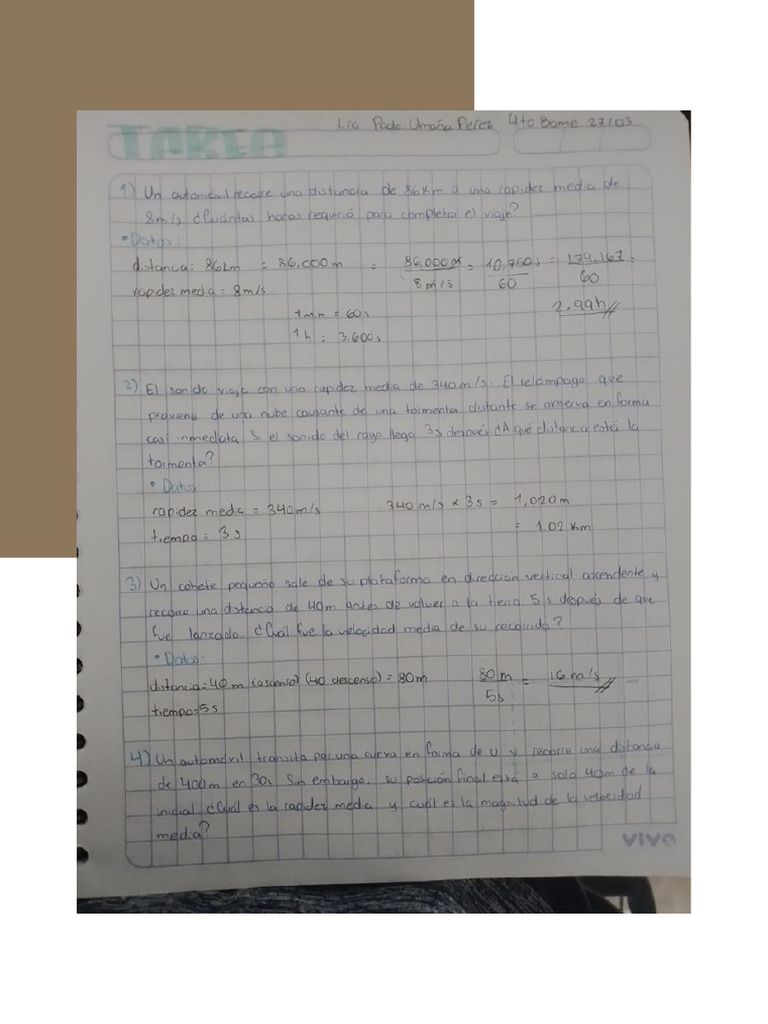 TAREA
Lic Paola Umaña Perez 4to Bame 27/03
1) Un automóvil recorre una distancia de 86km a una rapidez media de
8m/s ¿Cuántas horas requirió para completar el viaje?
• Datos:
distanca: 86km = 86,000m = 86,000m / 8m/s = 10,750s / 60 = 179.167 / 60 =
rapidez media: 8m/s
2.99h
1min = 60s
1h = 3.600s
2) El sonido viaja con una rapidez media de 340m/s. El relámpago que
proviene de una nube causante de una tormenta distante se observa en forma
casi inmediata. Si el sonido del rayo llega 3s después ¿A qué distancia está la
tormenta?
• Datos
rapidez media = 340m/s 340 m/s x 3s = 1,020m
tiempo = 3s = 1.02 Km
3) Un cohete pequeño sale de su plataforma en dirección vertical ascendente y
recorre una distancia de 40m antes de volver a la tierra 5s después de que
fue lanzado ¿Cuál fue la velocidad media de su recorrido?
• Datos:
distancia=40m (ascenso) (40 descenso) = 80m 80m / 5s = 16m/s
tiempo=5s
4) Un automóvil transita por una curva en forma de U y recorre una distancia
de 400m en 30s Sin embargo, su posición final está a solo 40m de la
inicial ¿Cuál es la rapidez media y cuál es la magnitud de la velocidad
media?
vivo